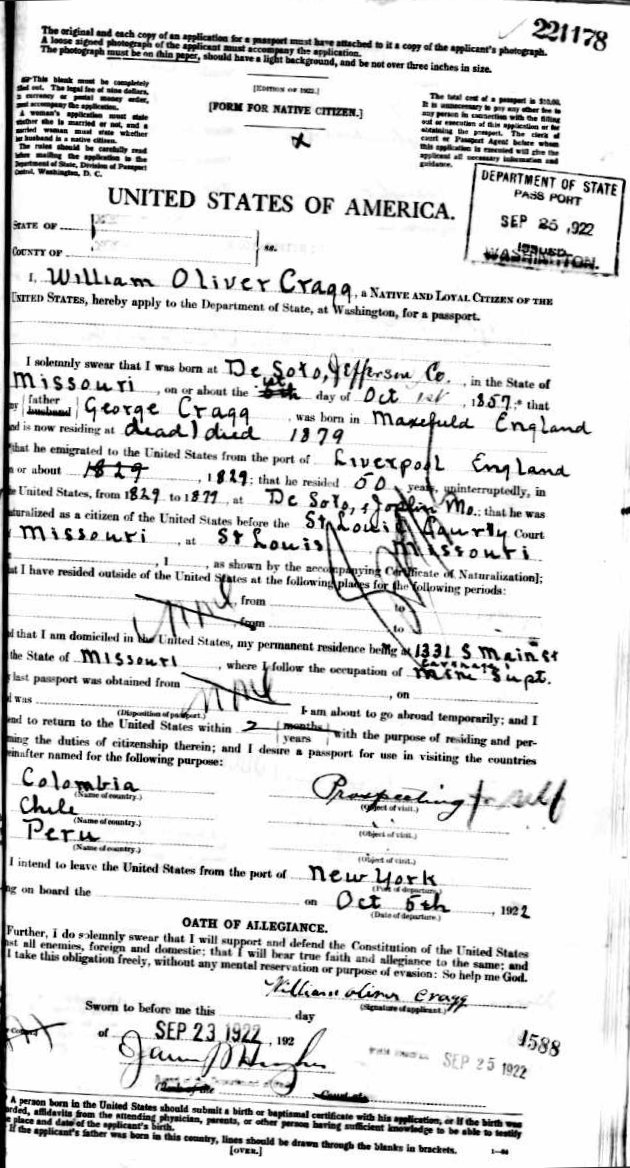 221178
The original and each copy of an application for a passport must have attached to it a copy of the applicant's photograph.
A loose signed photograph of the applicant must accompany the application.
The photograph must be on thin paper, should have a light background, and be not over three inches in size.
[EDITION OF 1922.]
[FORM FOR NATIVE CITIZEN.]
This blank must be completely
out. The legal fee of nine dollars,
currency or postal money order,
accompany the application.
A woman's application must state
whether she is married or not, and a
married woman must state whether
her husband is a native citizen.
The rules should be carefully read
before mailing the application to the
Department of State, Division of Passport
Control, Washington, D. C.
The total cost of a passport is $10.00.
It is unnecessary to pay any other fee to
any person in connection with the filling
out or execution of this application or for
obtaining the passport. The clerk of
court or Passport Agent before whom
this application is executed will give the
applicant all necessary information and
guidance.
DEPARTMENT OF STATE
PASS PORT
SEP 25 1922
ISSUED
WASHINGTON.
UNITED STATES OF AMERICA.
STATE OF
COUNTY OF
ss.
I, William Oliver Cragg, a NATIVE AND LOYAL CITIZEN OF THE
UNITED STATES, hereby apply to the Department of State, at Washington, for a passport.
I solemnly swear that I was born at De Soto, Jefferson Co., in the State of
Missouri, on or about the 1st day of Oct 1st, 1857; that
father husband George Cragg, was born in Maxefuld England
is now residing at dead) died 1879
that he emigrated to the United States from the port of Liverpool England
or about 1829, 1829; that he resided 50 years, uninterruptedly, in
United States, from 1829 to 1877, at De Soto, & Joplin Mo.; that he was
naturalized as a citizen of the United States before the St Louis County Court
Missouri, at St Louis Missouri
, 1, as shown by the accompanying Certificate of Naturalization];
I have resided outside of the United States at the following places for the following periods:
, from to
from , to
that I am domiciled in the United States, my permanent residence being at 1331 S Main St
the State of Missouri, where I follow the occupation of Mine Supt.
last passport was obtained from , on
was I am about to go abroad temporarily; and I
(Disposition of passport.)
to return to the United States within 2 months years with the purpose of residing and per-
the duties of citizenship therein; and I desire a passport for use in visiting the countries
named for the following purpose:
Colombia Prospecting for self
(Name of country.) (Object of visit.)
Chile
(Name of country.) (Object of visit.)
Peru
(Name of country.) (Object of visit.)
I intend to leave the United States from the port of New York
(Port of departure.)
on board the on Oct 5th, 1922
(Date of departure.)
OATH OF ALLEGIANCE.
Further, I do solemnly swear that I will support and defend the Constitution of the United States
all enemies, foreign and domestic; that I will bear true faith and allegiance to the same; and
I take this obligation freely, without any mental reservation or purpose of evasion: So help me God.
William Oliver Cragg
(Signature of applicant.)
Sworn to before me this day
of SEP 23 1922, 192
SEP 25 1922
4588
A person born in the United States should submit a birth or baptismal certificate with his application, or if the birth was
affidavits from the attending physician, parents, or other person having sufficient knowledge to be able to testify
place and date of the applicant's birth.
If the applicant's father was born in this country, lines should be drawn through the blanks in brackets.
[OVER.]